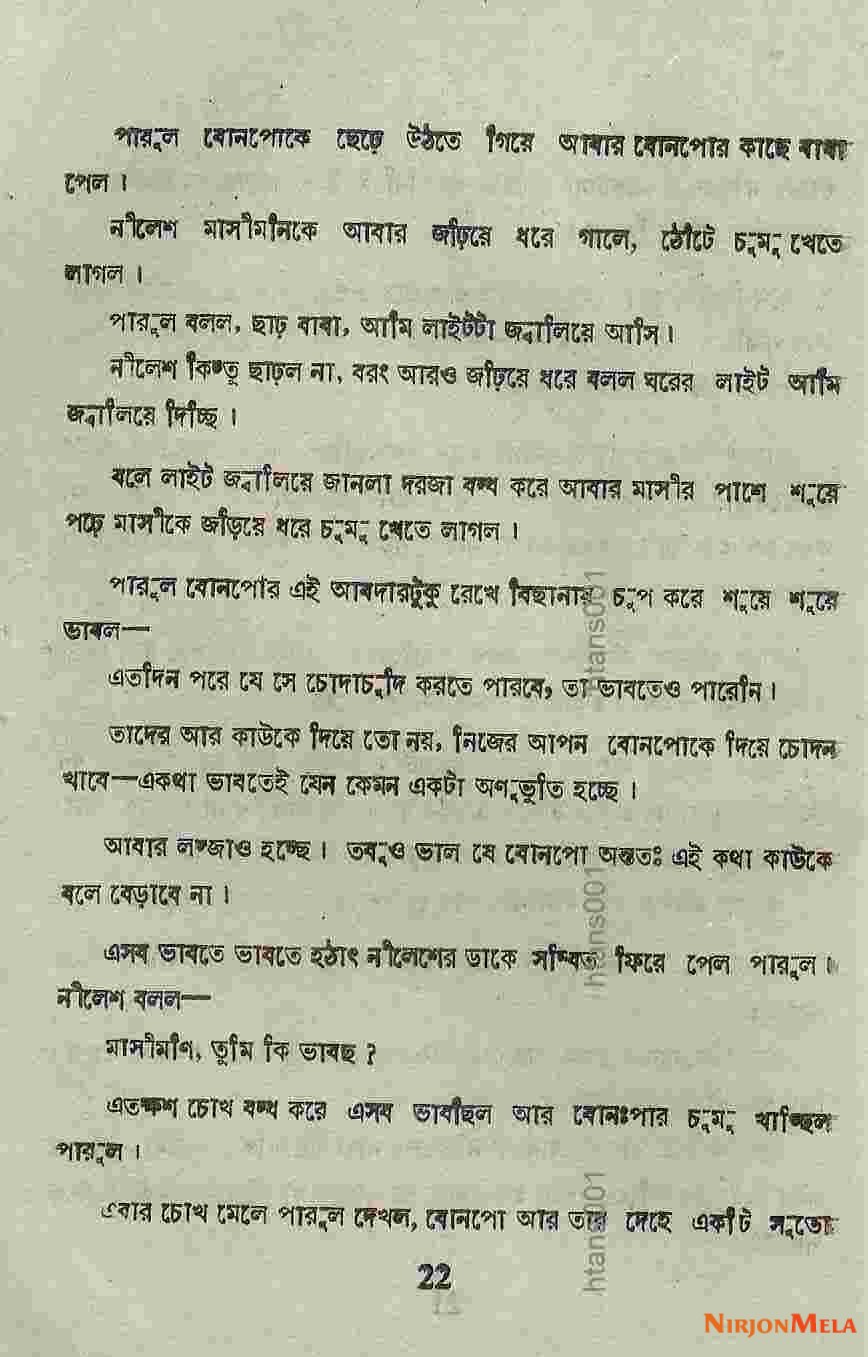 পারুল বোনপোকে ছেড়ে উঠতে গিয়ে আবার বোনপোর কাছে বাধা
পেল।
নীলেশ মাসীমনিকে আবার জড়িয়ে ধরে গালে, ঠোঁটে চুমু খেতে
লাগল।
পারুল বলল, ছাড় বাবা, আমি লাইটটা জ্বালিয়ে আসি।
নীলেশ কিন্তু ছাড়ল না, বরং আরও জড়িয়ে ধরে বলল ঘরের লাইট আমি
জ্বালিয়ে দিচ্ছি।
বলে লাইট জ্বালিয়ে জানলা দরজা বন্ধ করে আবার মাসীর পাশে শুয়ে
পড়ে মাসীকে জড়িয়ে ধরে চুমু খেতে লাগল।
পারুল বোনপোর এই আবদারটুকু রেখে বিছানার চুপ করে শুয়ে শুয়ে
ভাবল—
এতদিন পরে যে সে চোদাচুদি করতে পারবে, তা ভাবতেও পারেনি।
তাদের আর কাউকে দিয়ে তো নয়, নিজের আপন বোনপোকে দিয়ে চোদন
খাবে—একথা ভাবতেই যেন কেমন একটা অণুভুতি হচ্ছে।
আবার লজ্জাও হচ্ছে। তবুও ভাল যে বোনপো অন্ততঃ এই কথা কাউকে
বলে বেড়াবে না।
এসব ভাবতে ভাবতে হঠাৎ নীলেশের ডাকে সম্বিত ফিরে পেল পারুল।
নীলেশ বলল—
মাসীমণি, তুমি কি ভাবছ?
এতক্ষণ চোখ বন্ধ করে এসব ভাবছিল আর বোনঃপার চুমু খাচ্ছিল
পারুল।
এবার চোখ মেলে পারুল দেখল, বোনপো আর তার দেহে একটি সুতো
22
htans001
htans001
htans001
NIRJONMELA